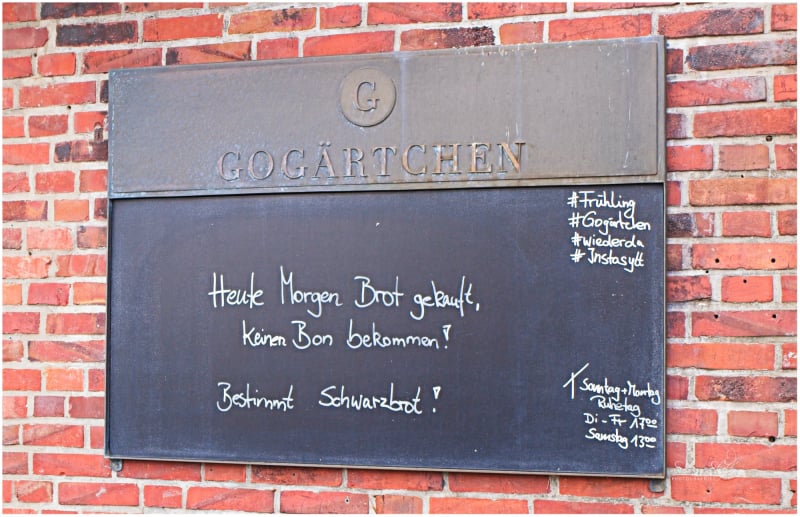 G
GOGÄRTCHEN
#Frühling
#Gogärtchen
#wiederda
#Instasylt
Heute Morgen Brot gekauft,
keinen Bon bekommen!
Bestimmt Schwarzbrot!
Sonntag+Montag
Ruhetag
Di - Fr 17⁰⁰
Samstag 13⁰⁰